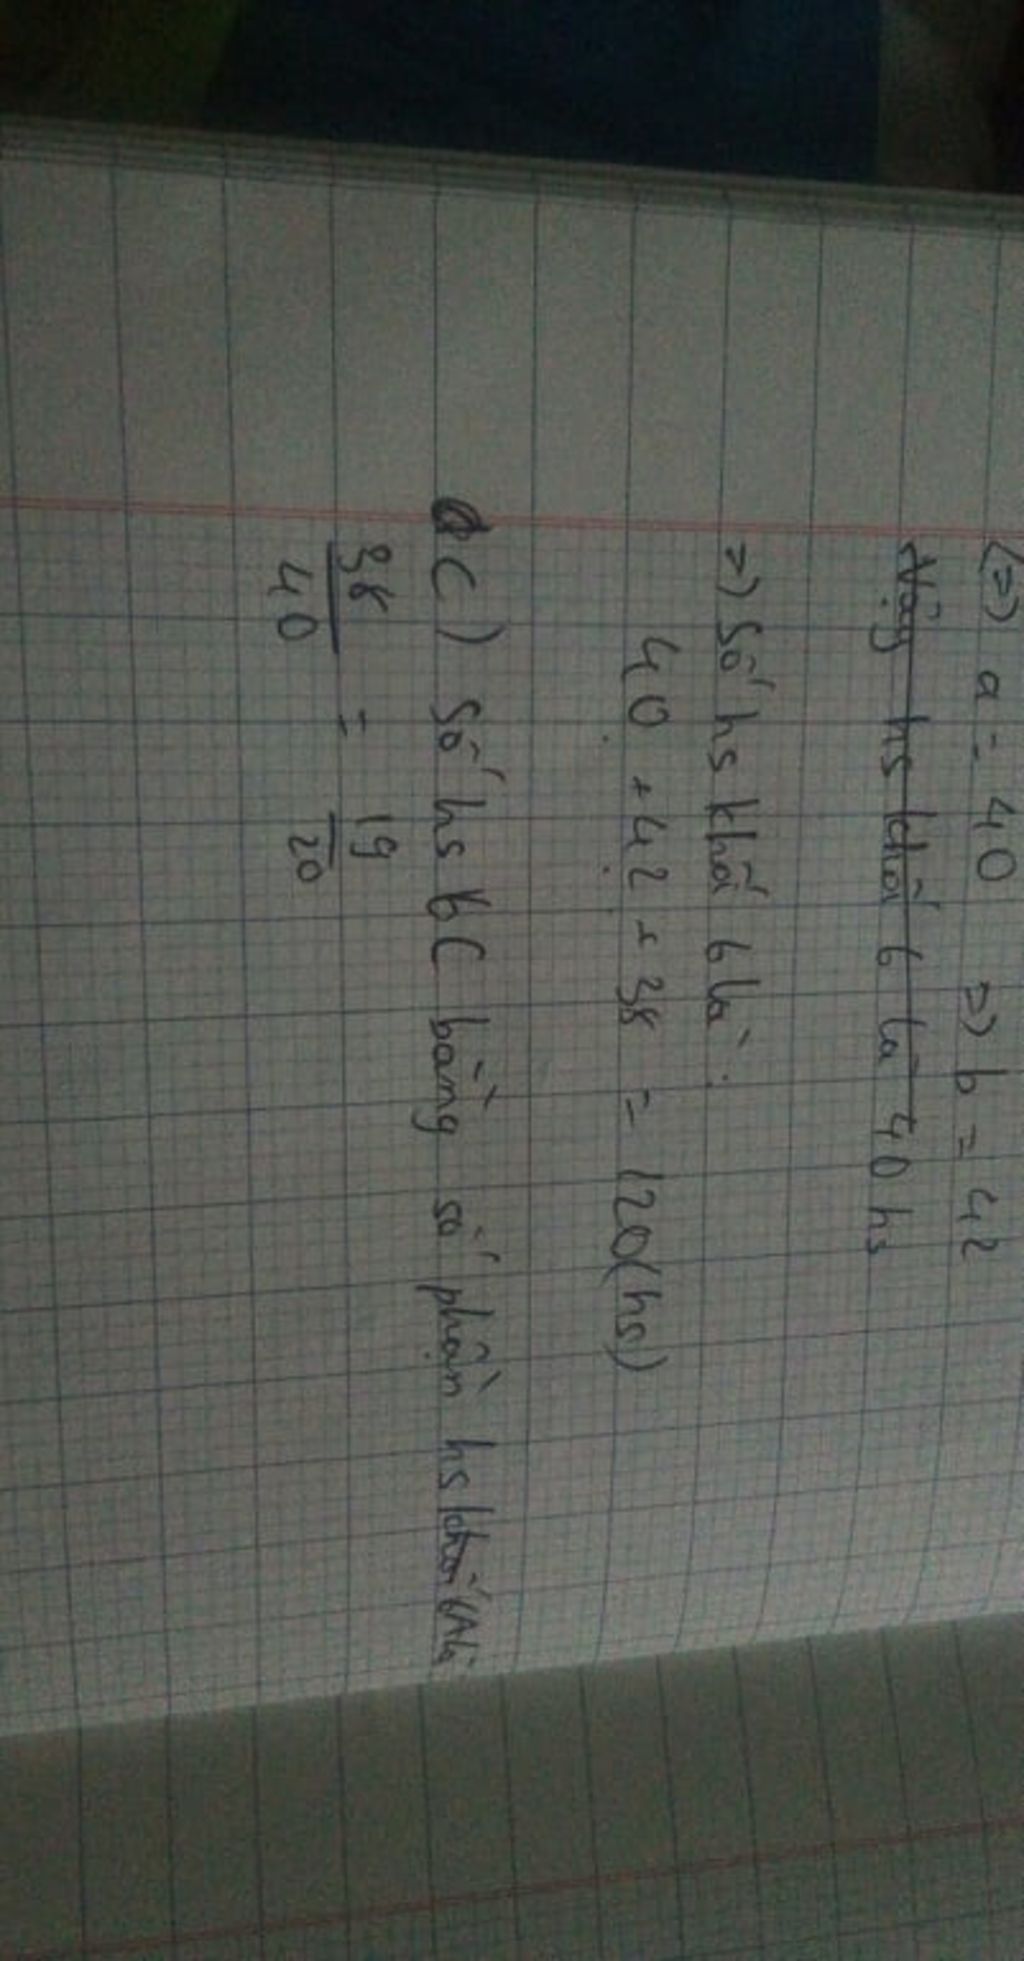 (=) a = 40 => b = 42
Vậy hs khối 6 là 40 hs
=) Số hs khối 6 là:
40 + 42 + 38 = 120(hs)
c) Số hs 6C bằng số phần hs khối 6A là
38/40 = 19/20